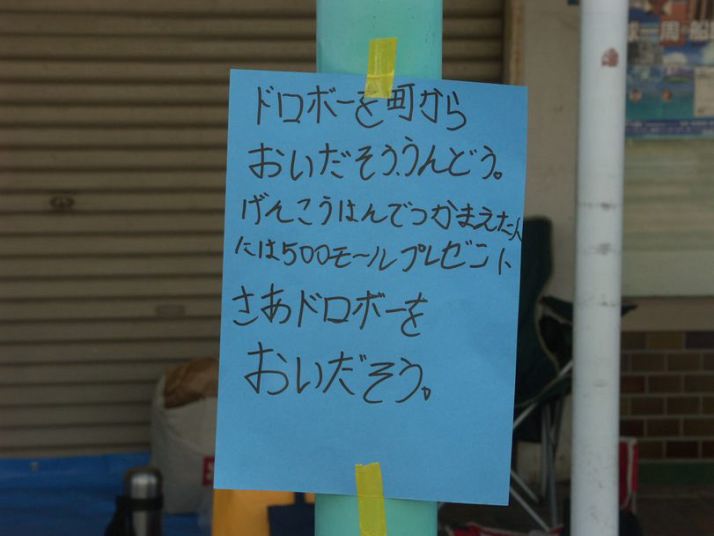 ドロボーを町から
おいだそう、うんどう。
げんこうはんでつかまえた人
には500モールプレゼント
さあドロボーを
おいだそう。